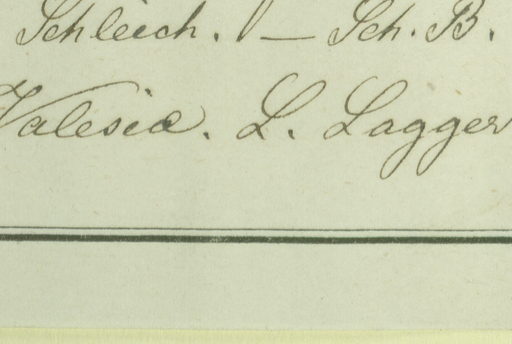 Schleich. — Sch. B.
Valesia. L. Lagger